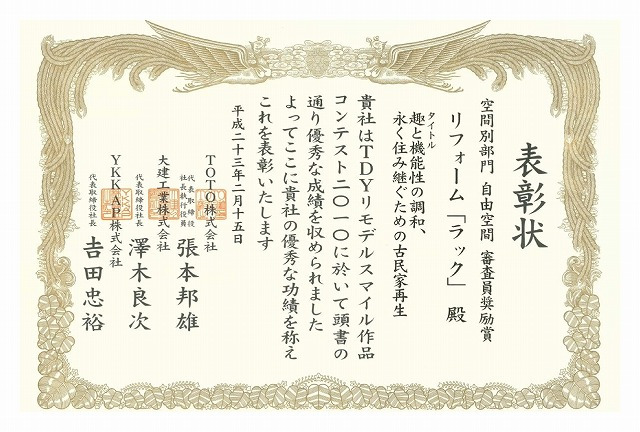 表彰状
空間別部門 自由空間 審査員奨励賞
リフォーム「ラック」 殿
タイトル
趣と機能性の調和、
永く住み継ぐための古民家再生
貴社はTDYリモデルスマイル作品
コンテスト二〇一〇に於いて頭書の
通り優秀な成績を収められました
よってここに貴社の優秀な功績を称え
これを表彰いたします
平成二十三年二月十五日
TOTO株式会社
代表取締役
社長執行役員
張本邦雄
大建工業株式会社
代表取締役社長
澤木良次
YKK AP株式会社
代表取締役社長
吉田忠裕